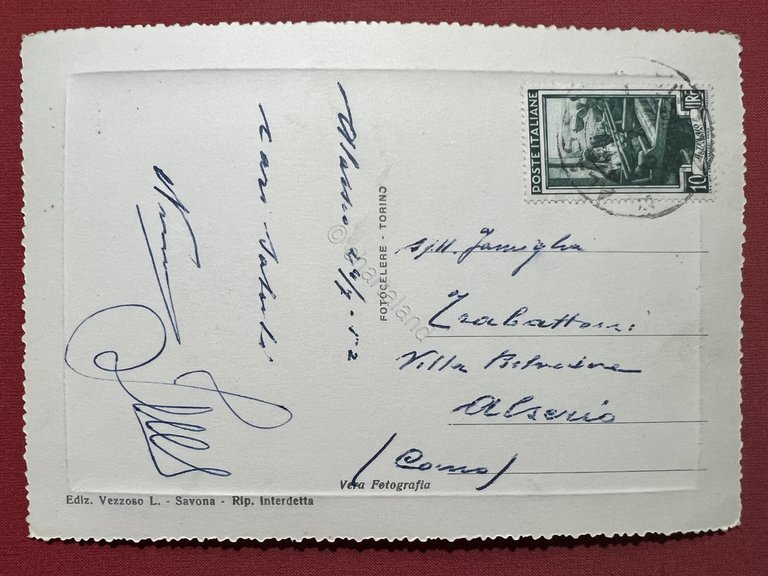 POSTE ITALIANE
LIRE 10
Alassio 24/7-52
cari saluti
FOTOCELERE - TORINO
© chartaland
Spett. Famiglia
Zambattoni
Villa Belvedere
Alserio
(Como)
Vera Fotografia
Ediz. Vezzoso L. - Savona - Rip. Interdetta